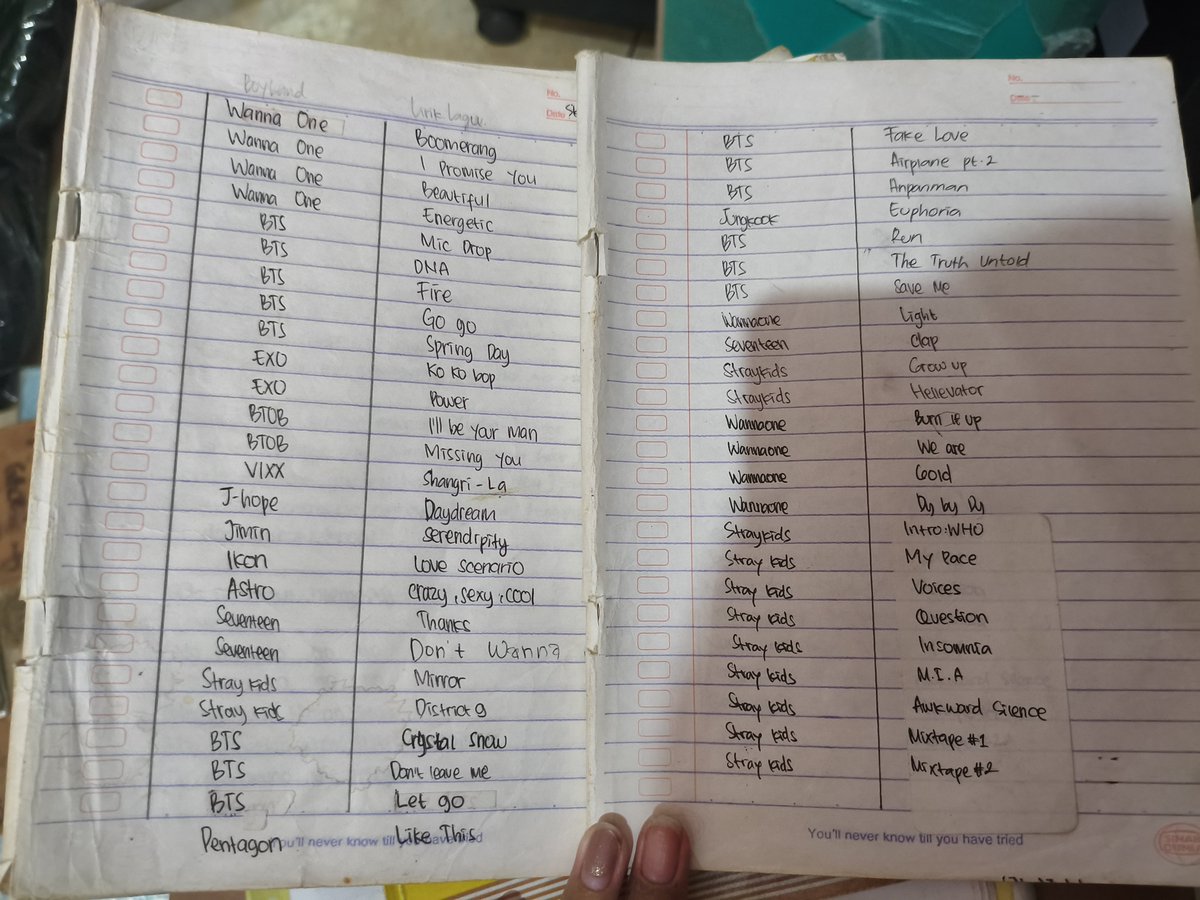 Boyband Lirik Lagu
No.
Date
Wanna One Boomerang
Wanna One I Promise You
Wanna One Beautiful
Wanna One Energetic
BTS Mic Drop
BTS DNA
BTS Fire
BTS Go go
BTS Spring Day
EXO Ko ko bop
EXO Power
BTOB I'll be your man
BTOB Missing you
VIXX Shangri-La
J-hope Daydream
Jimin serendripity
Ikon Love scenario
Astro crazy, sexy, cool
Seventeen Thanks
Seventeen Don't Wanna
Stray kids Mirror
Stray kids District 9
BTS Crystal snow
BTS Don't leave me
BTS Let go
Pentagon Like This
You'll never know till you have tried
No.
Date
BTS Fake Love
BTS Airplane pt.2
BTS Anpanman
Jungkook Euphoria
BTS Run
BTS The Truth Untold
BTS Save Me
Wannaone Light
Seventeen clap
Straykids Grow up
Straykids Hellevator
Wannaone Burn It up
Wannaone We are
Wannaone Gold
Wannaone Day by Day
Straykids Intro:WHO
Stray kids My Pace
Stray kids Voices
Stray kids Question
Stray kids Insomnia
Stray kids M.I.A
Stray kids Awkward Silence
Stray kids Mixtape #1
Stray kids Mixtape #2
You'll never know till you have tried